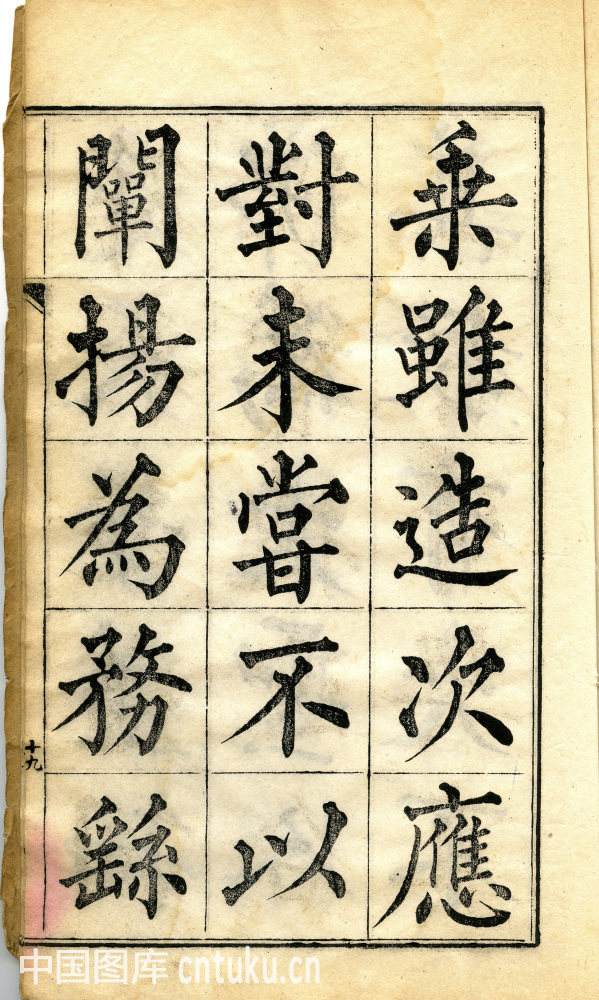 乗雖造次應
對未嘗不以
闡揚為務繇
十九
中国图库 cntuku.cn